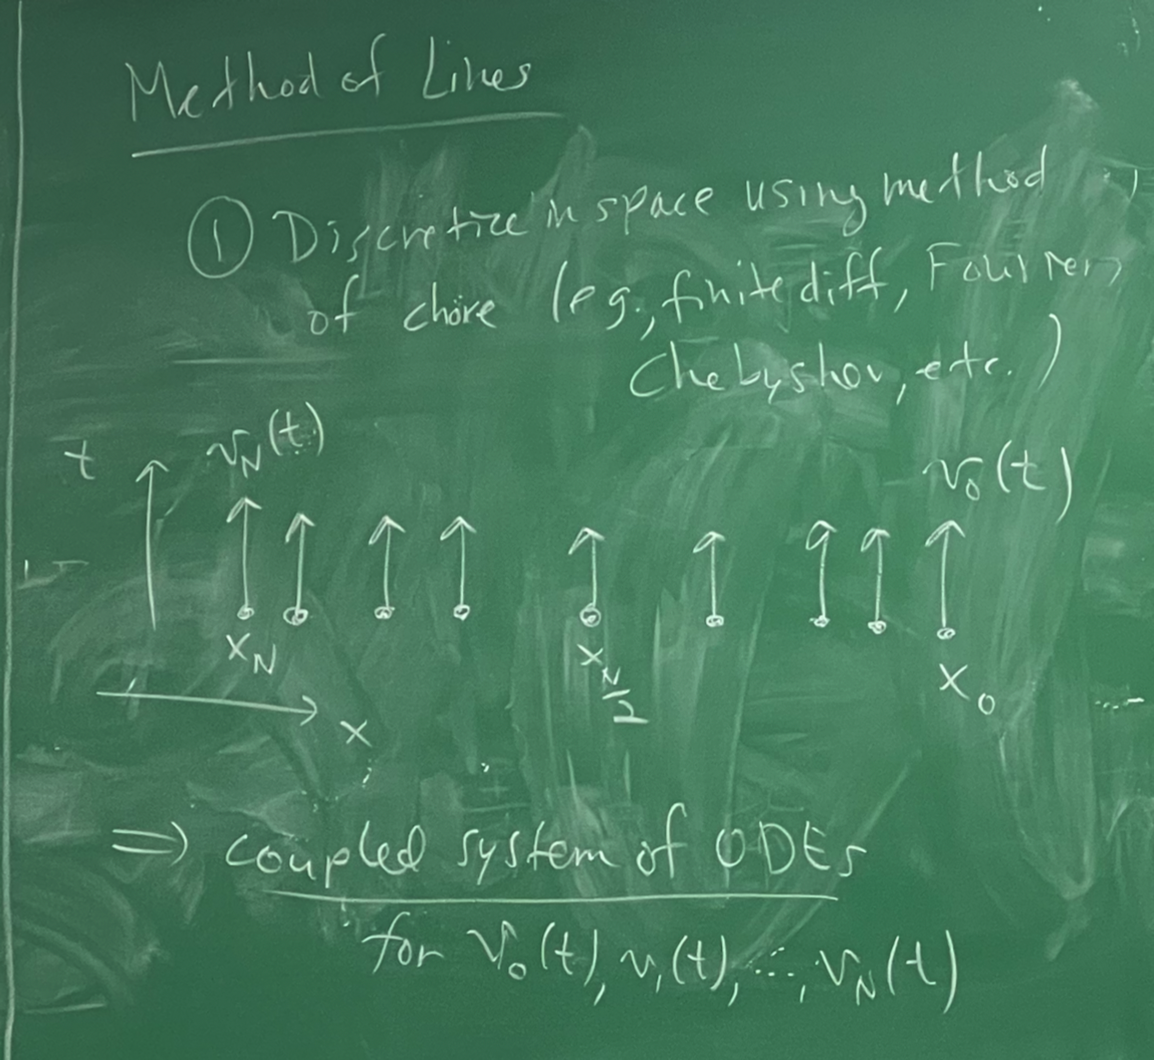 Method of Lines
① Discretize in space using method
of choice (eg., finite diff, Fourier,
Chebyshev, etc.)
t v_N(t) v_0(t)
x_N x_{N/2} x_0
x
⇒ coupled system of ODEs
for v_0(t), v_1(t), ..., v_N(t)